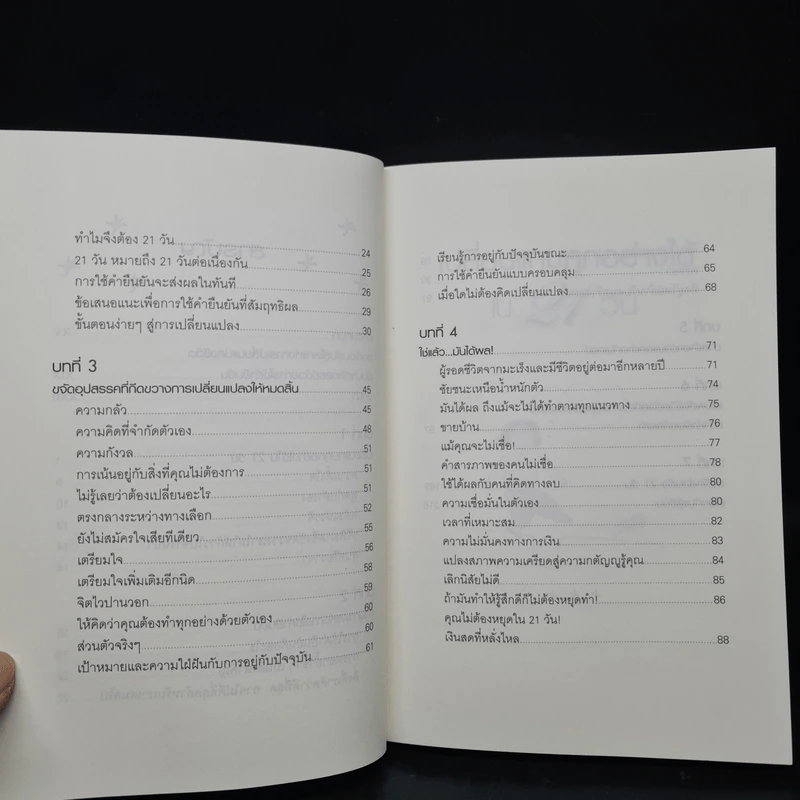 ทำไมจึงต้อง 21 วัน 24
21 วัน หมายถึง 21 วันต่อเนื่องกัน 25
การใช้คำยืนยันจะส่งผลในทันที 26
ข้อเสนอแนะเพื่อการใช้คำยืนยันที่สัมฤทธิผล 29
ขั้นตอนง่ายๆ สู่การเปลี่ยนแปลง 30
บทที่ 3
ขจัดอุปสรรคที่กีดขวางการเปลี่ยนแปลงให้หมดสิ้น 45
ความกลัว 45
ความคิดที่จำกัดตัวเอง 48
ความกังวล 51
การเน้นอยู่กับสิ่งที่คุณไม่ต้องการ 51
ไม่รู้เลยว่าต้องเปลี่ยนอะไร 51
ตรงกลางระหว่างทางเลือก 52
ยังไม่สมัครใจเสียทีเดียว 55
เตรียมใจ 56
เตรียมใจเพิ่มเติมอีกนิด 58
จิตไวปานวอก 59
ให้คิดว่าคุณต้องทำทุกอย่างด้วยตัวเอง 60
ส่วนตัวจริงๆ 60
เป้าหมายและความใฝ่ฝันกับการอยู่กับปัจจุบัน 61
เรียนรู้การอยู่กับปัจจุบันขณะ 64
การใช้คำยืนยันแบบครอบคลุม 65
เมื่อใดไม่ต้องคิดเปลี่ยนแปลง 68
บทที่ 4
ใช่แล้ว...มันได้ผล! 71
ผู้รอดชีวิตจากมะเร็งและมีชีวิตอยู่ต่อมาอีกหลายปี 71
ชัยชนะเหนือน้ำหนักตัว 74
มันได้ผล ถึงแม้จะไม่ได้ทำตามทุกแนวทาง 75
ขายบ้าน 76
แม้คุณจะไม่เชื่อ! 77
คำสารภาพของคนไม่เชื่อ 78
ใช้ได้ผลกับคนที่คิดทางลบ 80
ความเชื่อมั่นในตัวเอง 80
เวลาที่เหมาะสม 82
ความไม่มั่นคงทางการเงิน 83
แปลงสภาพความเครียดสู่ความกตัญญูรู้คุณ 84
เลิกนิสัยไม่ดี 85
ถ้ามันทำให้รู้สึกดีก็ไม่ต้องหยุดทำ! 86
คุณไม่ต้องหยุดใน 21 วัน!
เงินสดที่หลั่งไหล 88